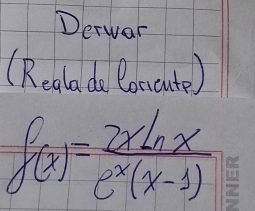 Derivar
(Regla de Cociente)
f(x) = 2x Ln x / e^x (x-1)
NNER